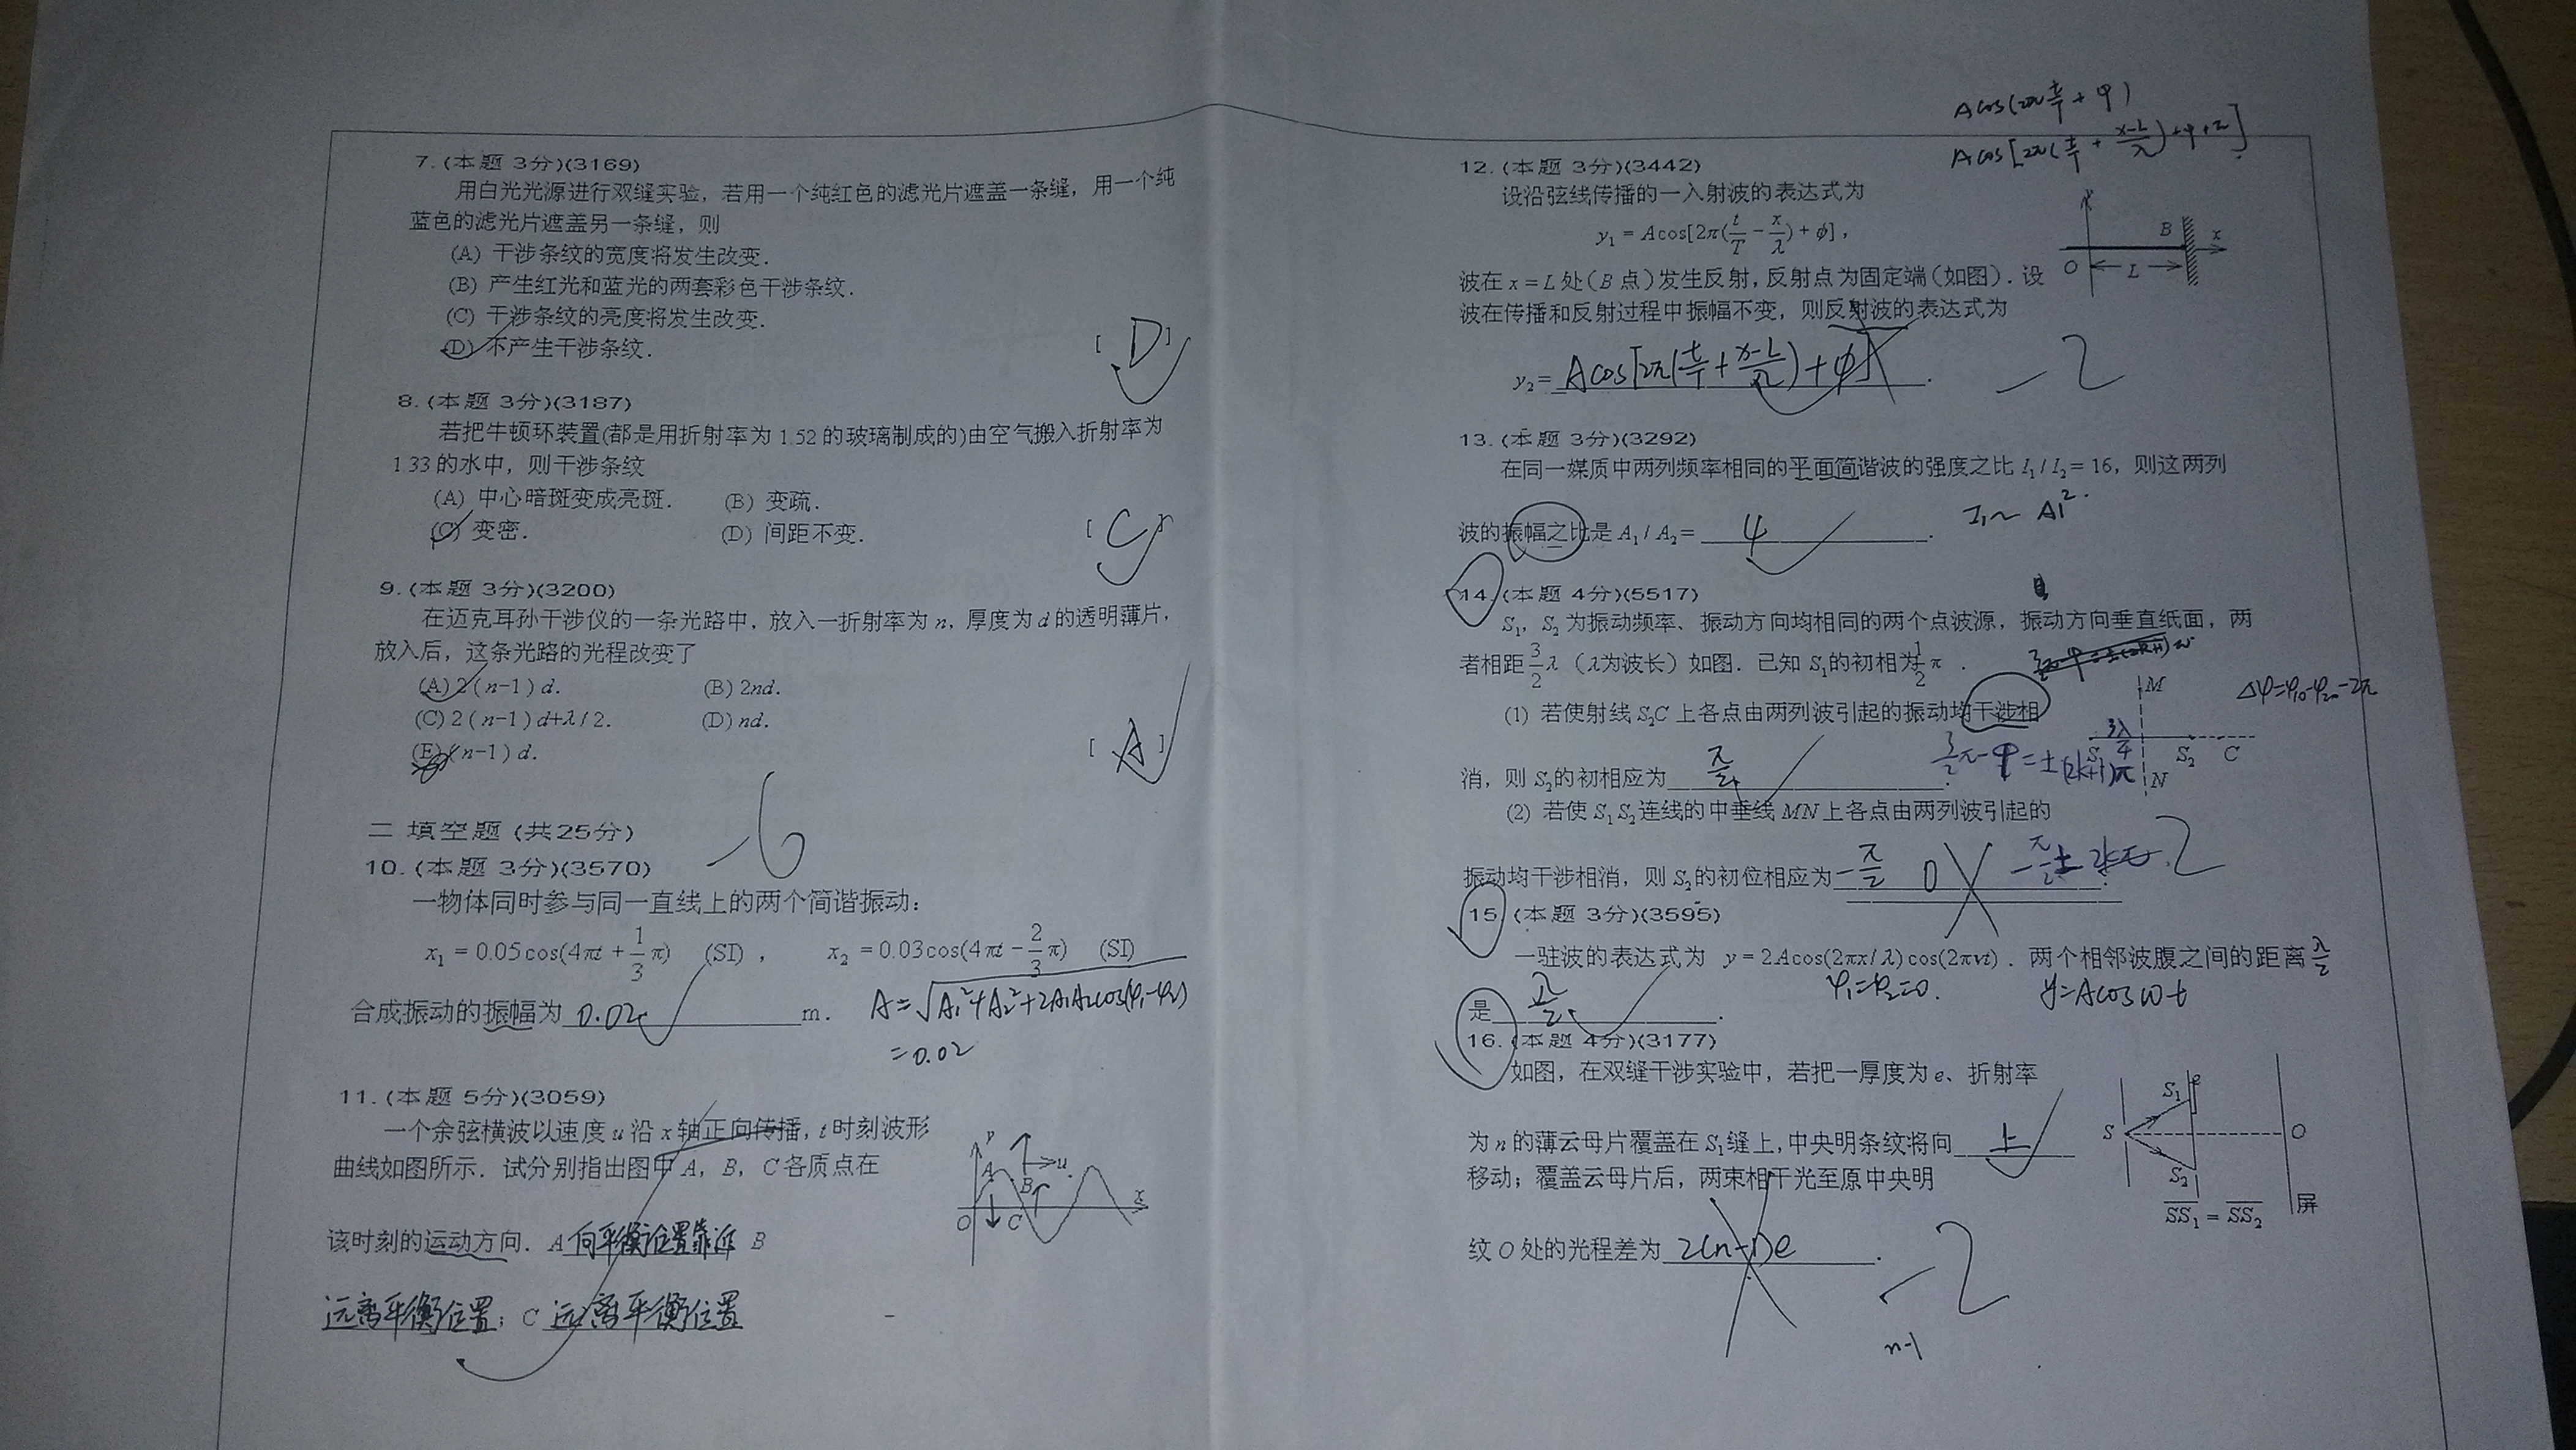 7. (本题 3分)(3169)
用白光光源进行双缝实验，若用一个纯红色的滤光片遮盖一条缝，用一个纯
蓝色的滤光片遮盖另一条缝，则
(A) 干涉条纹的宽度将发生改变．
(B) 产生红光和蓝光的两套彩色干涉条纹．
(C) 干涉条纹的亮度将发生改变．
(D) 不产生干涉条纹．
[ D ]
8. (本题 3分)(3187)
若把牛顿环装置(都是用折射率为 1.52 的玻璃制成的)由空气搬入折射率为
1.33 的水中，则干涉条纹
(A) 中心暗斑变成亮斑． (B) 变疏．
(C) 变密． (D) 间距不变．
[ C ]
9. (本题 3分)(3200)
在迈克耳孙干涉仪的一条光路中，放入一折射率为 n，厚度为 d 的透明薄片，
放入后，这条光路的光程改变了
(A) 2 ( n-1 ) d. (B) 2nd.
(C) 2 ( n-1 ) d+λ / 2. (D) nd.
(E) ( n-1 ) d.
[ A ]
-6
二 填空题 (共25分)
10. (本题 3分)(3570)
一物体同时参与同一直线上的两个简谐振动：
x₁ = 0.05cos(4πt + 1/3 π) (SI) ， x₂ = 0.03cos(4πt − 2/3 π) (SI)
合成振动的振幅为 0.02 m．
A = √(A₁²+A₂²+2A₁A₂cos(φ₁-φ₂))
=0.02
11. (本题 5分)(3059)
一个余弦横波以速度 u 沿 x 轴正向传播，t 时刻波形
曲线如图所示．试分别指出图中 A，B，C 各质点在
该时刻的运动方向．A 向平衡位置靠近 B
远离平衡位置；C 远离平衡位置
y
A
u
B
x
O
C
Acos(2π t/T + φ)
Acos[2π(t/T + (x-L)/λ)+φ+π]
12. (本题 3分)(3442)
设沿弦线传播的一入射波的表达式为
y₁ = A cos[2π(t/T − x/λ) + φ] ，
波在 x = L 处（B 点）发生反射，反射点为固定端（如图）．设
波在传播和反射过程中振幅不变，则反射波的表达式为
y₂ = Acos[2π(t/T + (x-L)/λ)+φ] .
-2
y
B
x
O
L
13. (本题 3分)(3292)
在同一媒质中两列频率相同的平面简谐波的强度之比 I₁ / I₂ = 16，则这两列
波的振幅之比是 A₁ / A₂ = 4 ．
I₁ ~ A1².
14. (本题 4分)(5517)
S₁，S₂ 为振动频率、振动方向均相同的两个点波源，振动方向垂直纸面，两
者相距 3/2 λ（λ为波长）如图．已知 S₁的初相为 1/2 π ．
(1) 若使射线 S₂C 上各点由两列波引起的振动均干涉相
消，则 S₂的初相应为 π/2 .
(2) 若使 S₁ S₂连线的中垂线 MN 上各点由两列波引起的
振动均干涉相消，则 S₂的初位相应为 -π/2 0
M
S₁
S₂
C
N
15. (本题 3分)(3595)
一驻波的表达式为 y = 2A cos(2πx / λ) cos(2πνt) ．两个相邻波腹之间的距离
是 λ/2 .
φ₁=φ₂=0.
y=Acosωt
λ/2
16. (本题 4分)(3177)
如图，在双缝干涉实验中，若把一厚度为 e、折射率
为 n 的薄云母片覆盖在 S₁缝上，中央明条纹将向 上
移动；覆盖云母片后，两束相干光至原中央明
纹 O 处的光程差为 2(n-1)e .
-2
n-1
S₁
e
S
O
S₂
屏
SS₁ = SS₂